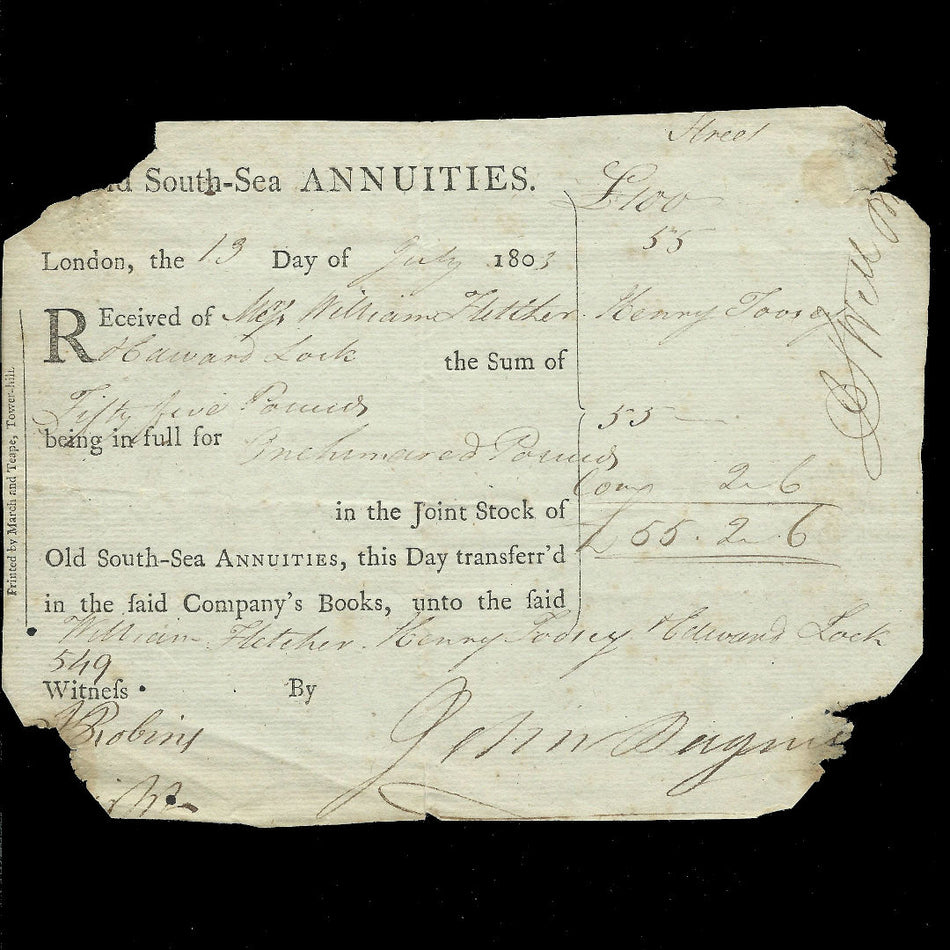 Street
Old South-Sea ANNUITIES.
£100
55
London, the 13 Day of July 1803
REceived of Messrs William Fletcher. Henry Toosey
Edward Lock the Sum of
Fifty five Pounds
55 —
being in full for One hundred Pounds
Comn 2 - 6
in the Joint Stock of
£ 55 . 2 - 6
Old South-Sea ANNUITIES, this Day transferr'd
in the ſaid Company's Books, unto the ſaid
William Fletcher. Henry Toosey Edward Lock
549
Witneſs By
Robins John
Printed by March and Teape, Tower-hill.